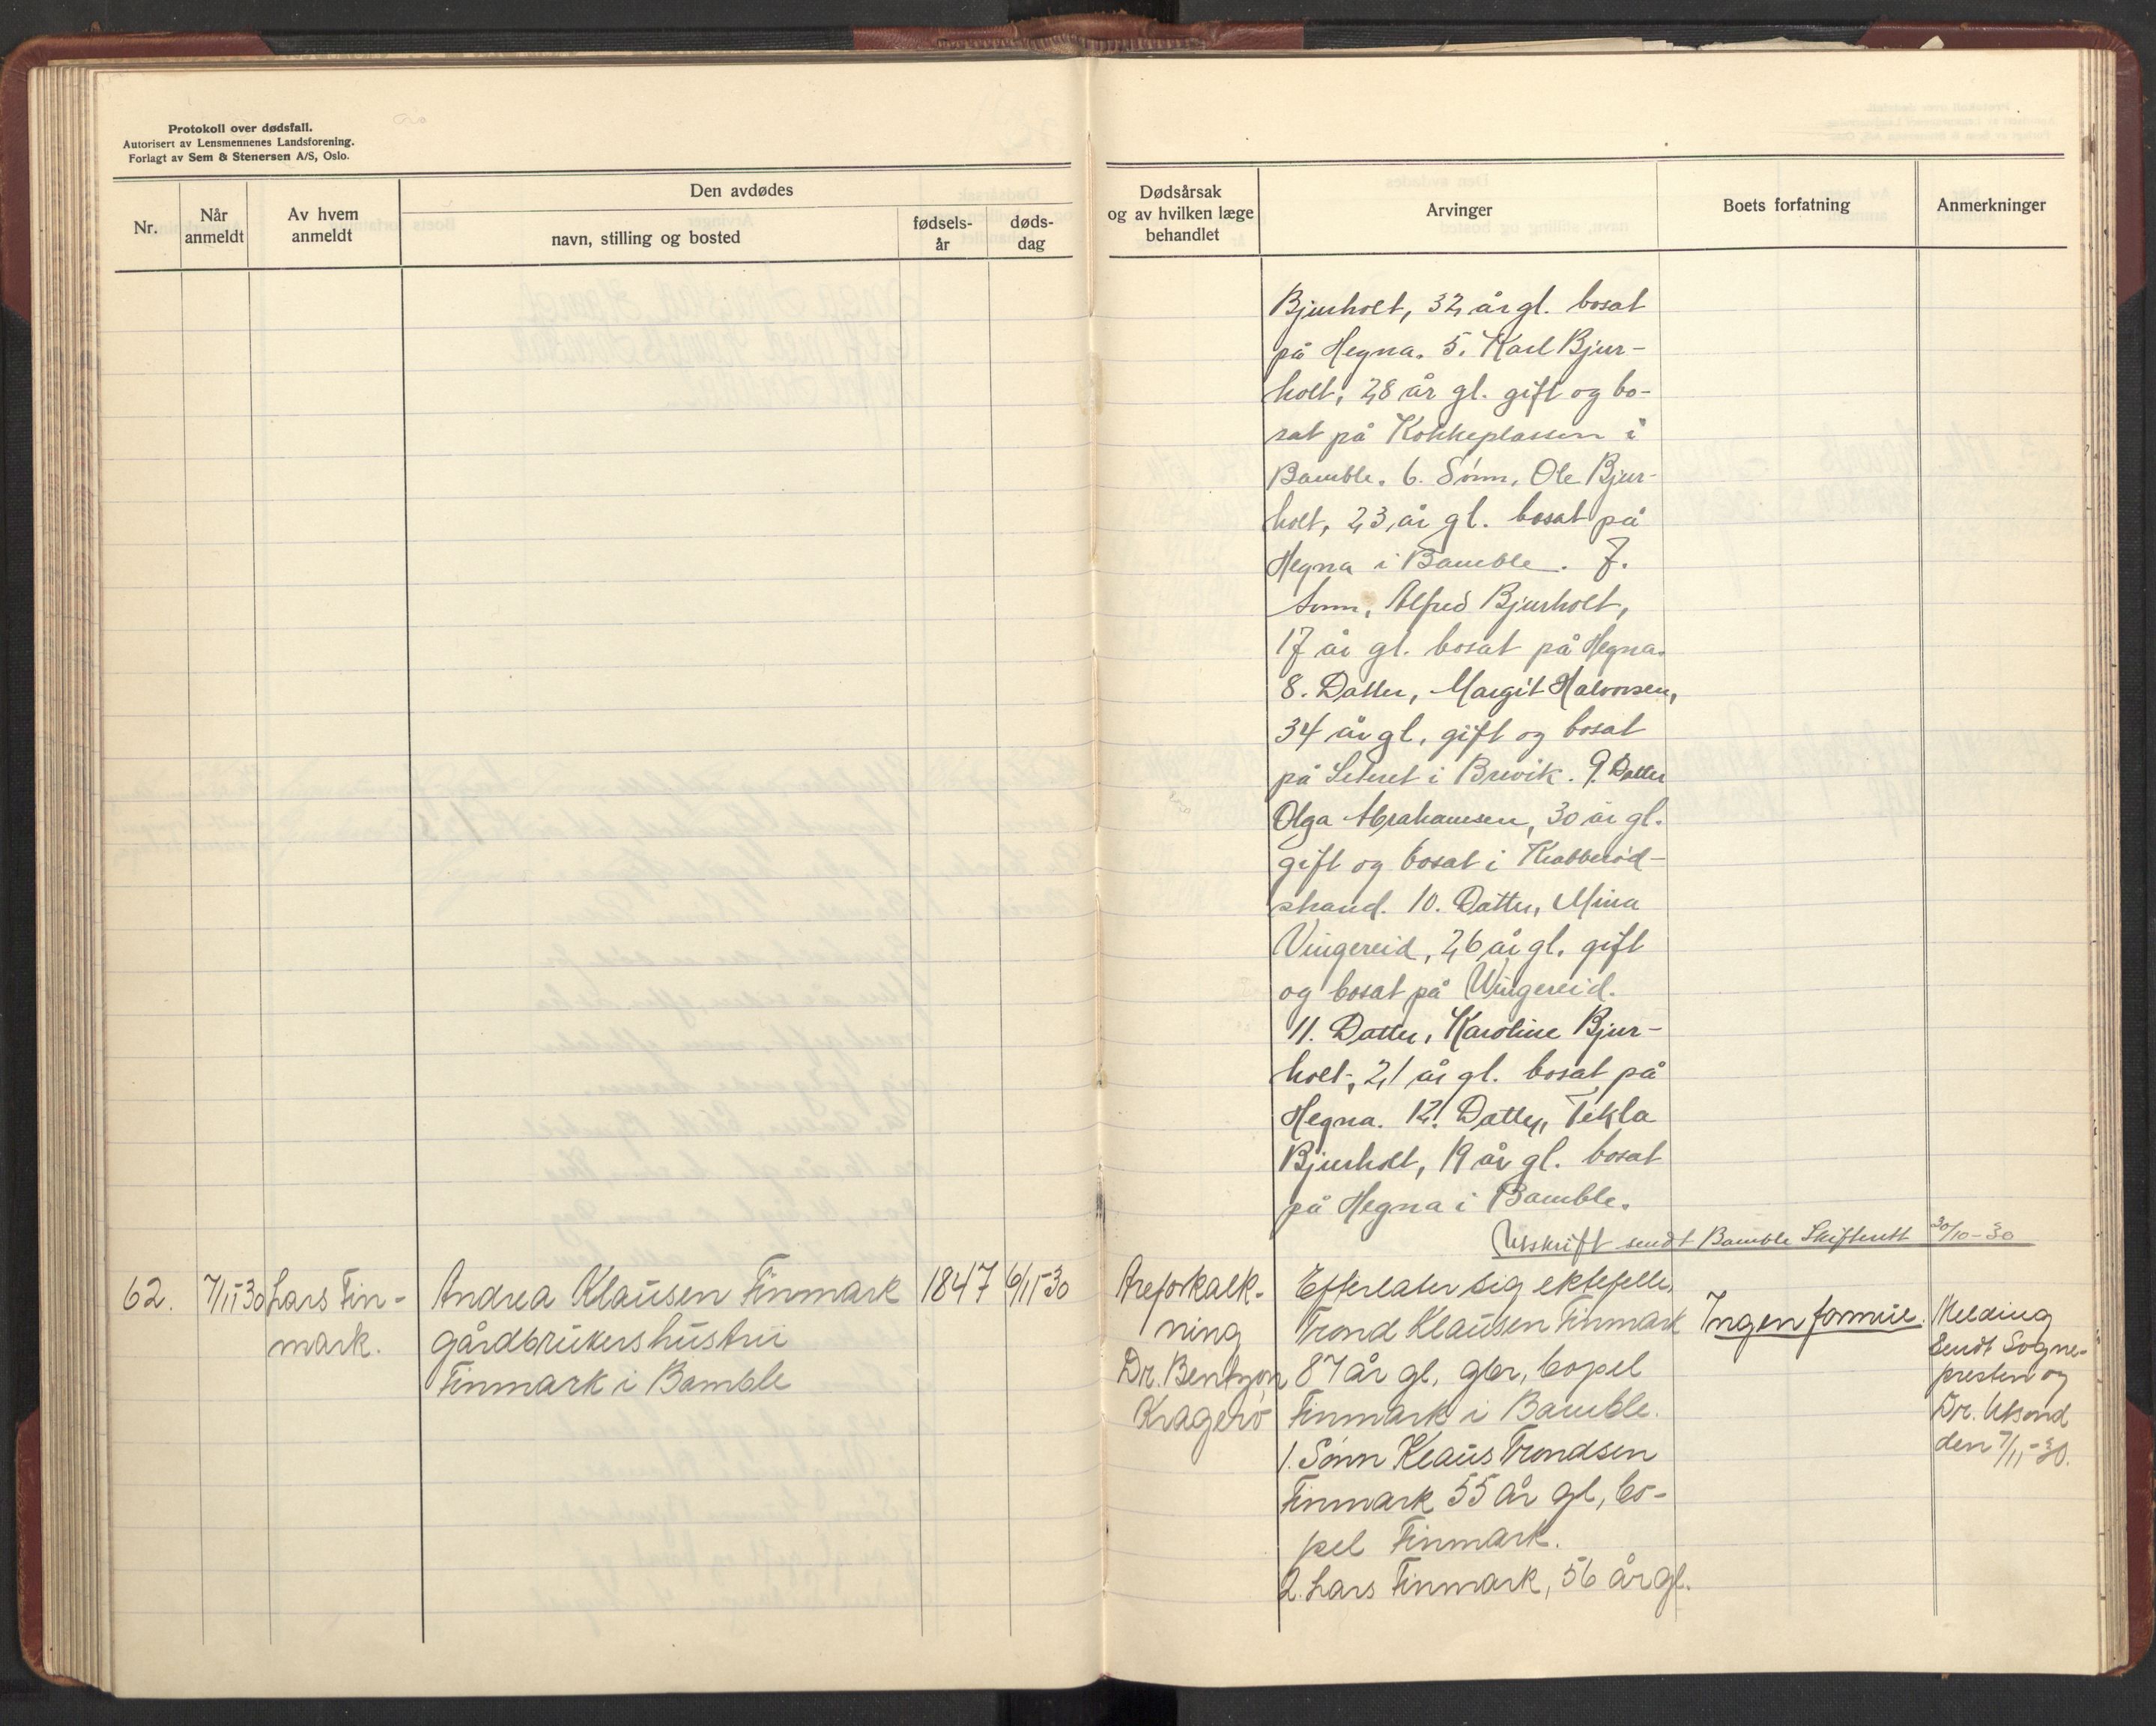 Protokoll over dødsfall.
Autorisert av Lensmennenes Landsforening.
Forlagt av Sem & Stenersen A/S, Oslo.
Nr.
Når
anmeldt
Av hvem
anmeldt
Den avdødes
navn, stilling og bosted
fødsels-
år
døds-
dag
Dødsårsak
og av hvilken læge
behandlet
Arvinger
Boets forfatning
Anmerkninger
Bjurholt, 32 år gl. bosat
på Hegna. 5. Karl Bjur-
holt, 28 år gl. gift og bo-
sat på Kokkeplassen i
Bamble. 6. Sønn, Ole Bjur-
holt, 23 år gl. bosat på
Hegna i Bamble. 7.
Sønn, Alfred Bjurholt,
17 år gl. bosat på Hegna.
8. Datter, Margit Halvorsen,
34 år gl, gift og bosat
på Seteret i Brevik. 9. Datter
Olga Abrahamsen, 30 år gl.
gift og bosat i Krabberød-
strand. 10. Datter, Mina
Vingereid, 26 år gl. gift
og bosat på Vingereid.
11. Datter, Karoline Bjur-
holt, 21 år gl. bosat på
Hegna. 12. Datter, Tekla
Bjurholt, 19 år gl. bosat
på Hegna i Bamble.
Utskrift sendt Bamble Skifterett 30/10-30
62.
7/11-30
Lars Fin-
mark.
Andrea Klausen Finmark
gårdbrukers hustru
Finmark i Bamble
1847
6/11-30
Areforkalk-
ning
Dr. Bentzon
Kragerø
Efterlater sig ektefelle,
Trond Klausen Finmark
87 år gl, gbr, bopel
Finmark i Bamble.
1. Sønn Klaus Trondsen
Finmark 55 år gl, bo-
pel Finmark.
2. Lars Finmark, 56 år gl.
Ingen formue.
Melding
sendt Sogne-
presten og
Dr.
den 7/11-30.